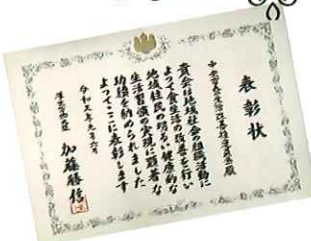 表彰状
中央市食生活改善推進員会殿
貴会は地域社会の組織活動に
よって食生活の改善を行い
地域住民の明るい健康的な
生活習慣の実現に顕著な
功績を納められました
よってここに表彰します
令和五年九月六日
厚生労働大臣 加藤勝信